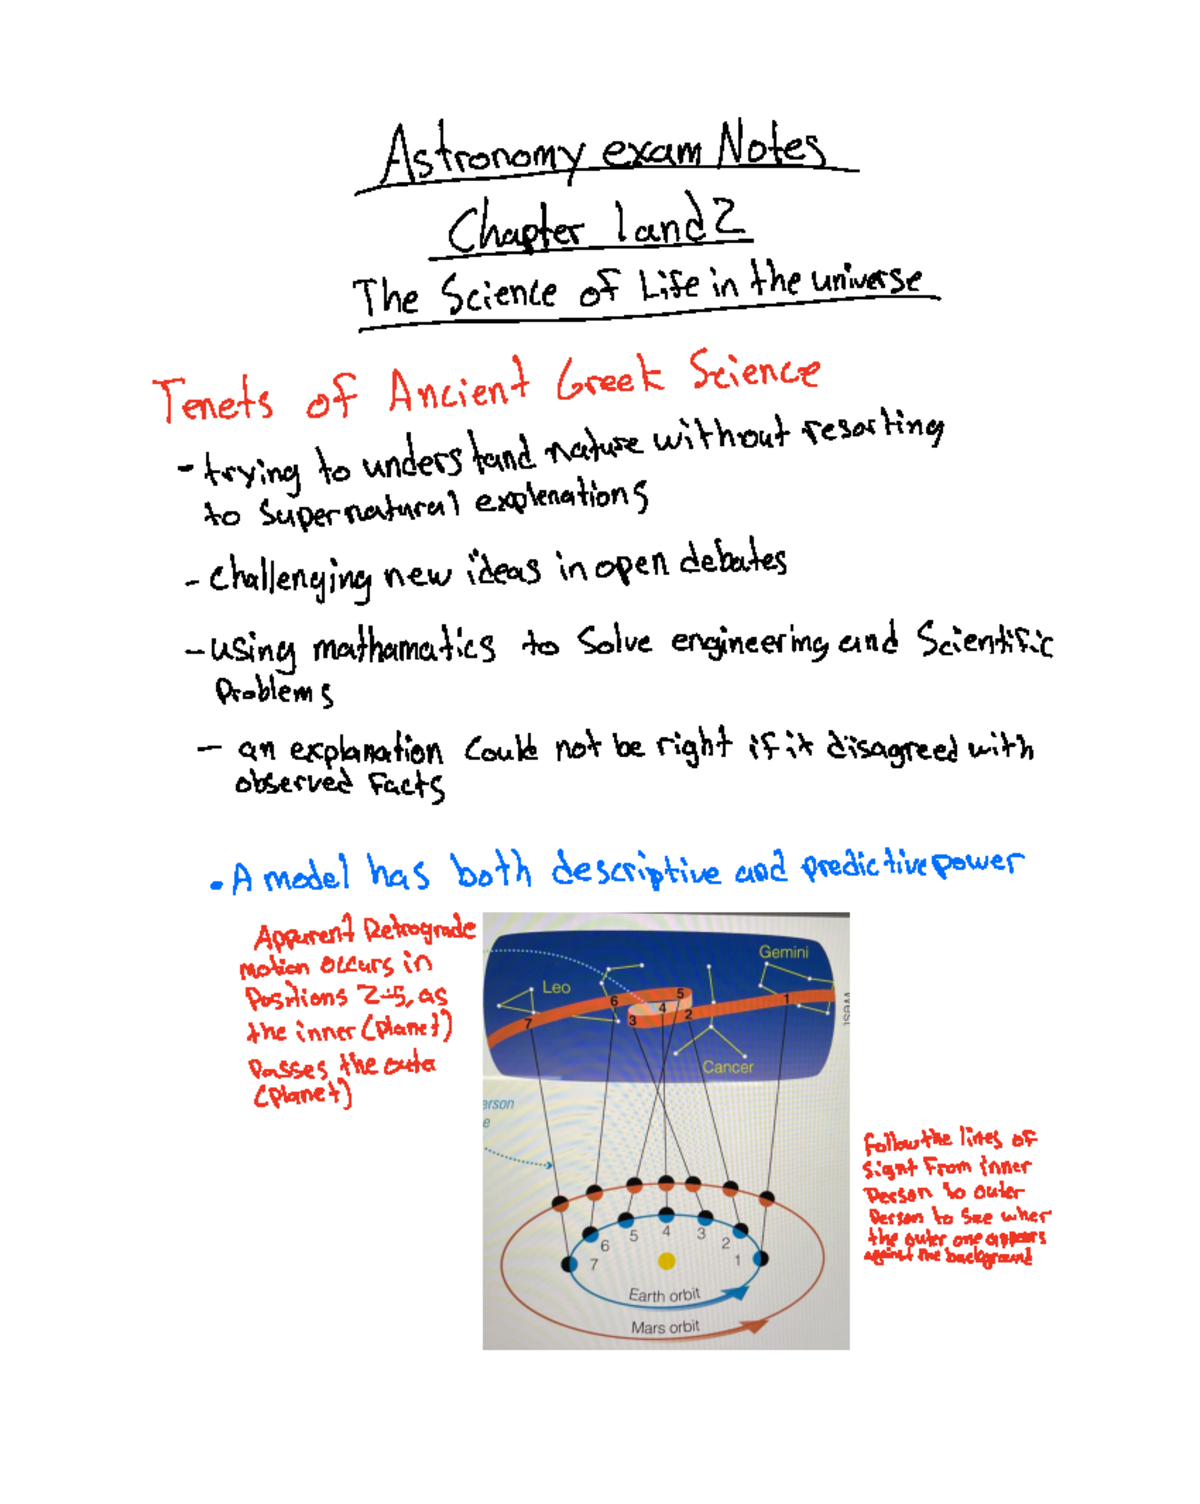 Astronomy exam Notes
Chapter 1 and 2
The Science of Life in the universe
Tenets of Ancient Greek Science
- trying to understand nature without resorting
to Supernatural explenations
- challenging new ideas in open debates
- using mathamatics to Solve engineering and Scientific
Problems
- an explanation Could not be right if it disagreed with
observed Facts
• A model has both descriptive and predictive power
Apparent Retrograde
motion occurs in
Positions 2-5, as
the inner (planet)
Passes the outer
(planet)
Gemini
Leo
6
5
4
3
2
1
7
West
Cancer
erson
e
Follow the lines of
Sight From inner
Person to outer
Person to See wher
the outer one appears
against the background
7
6
5
4
3
2
1
Earth orbit
Mars orbit